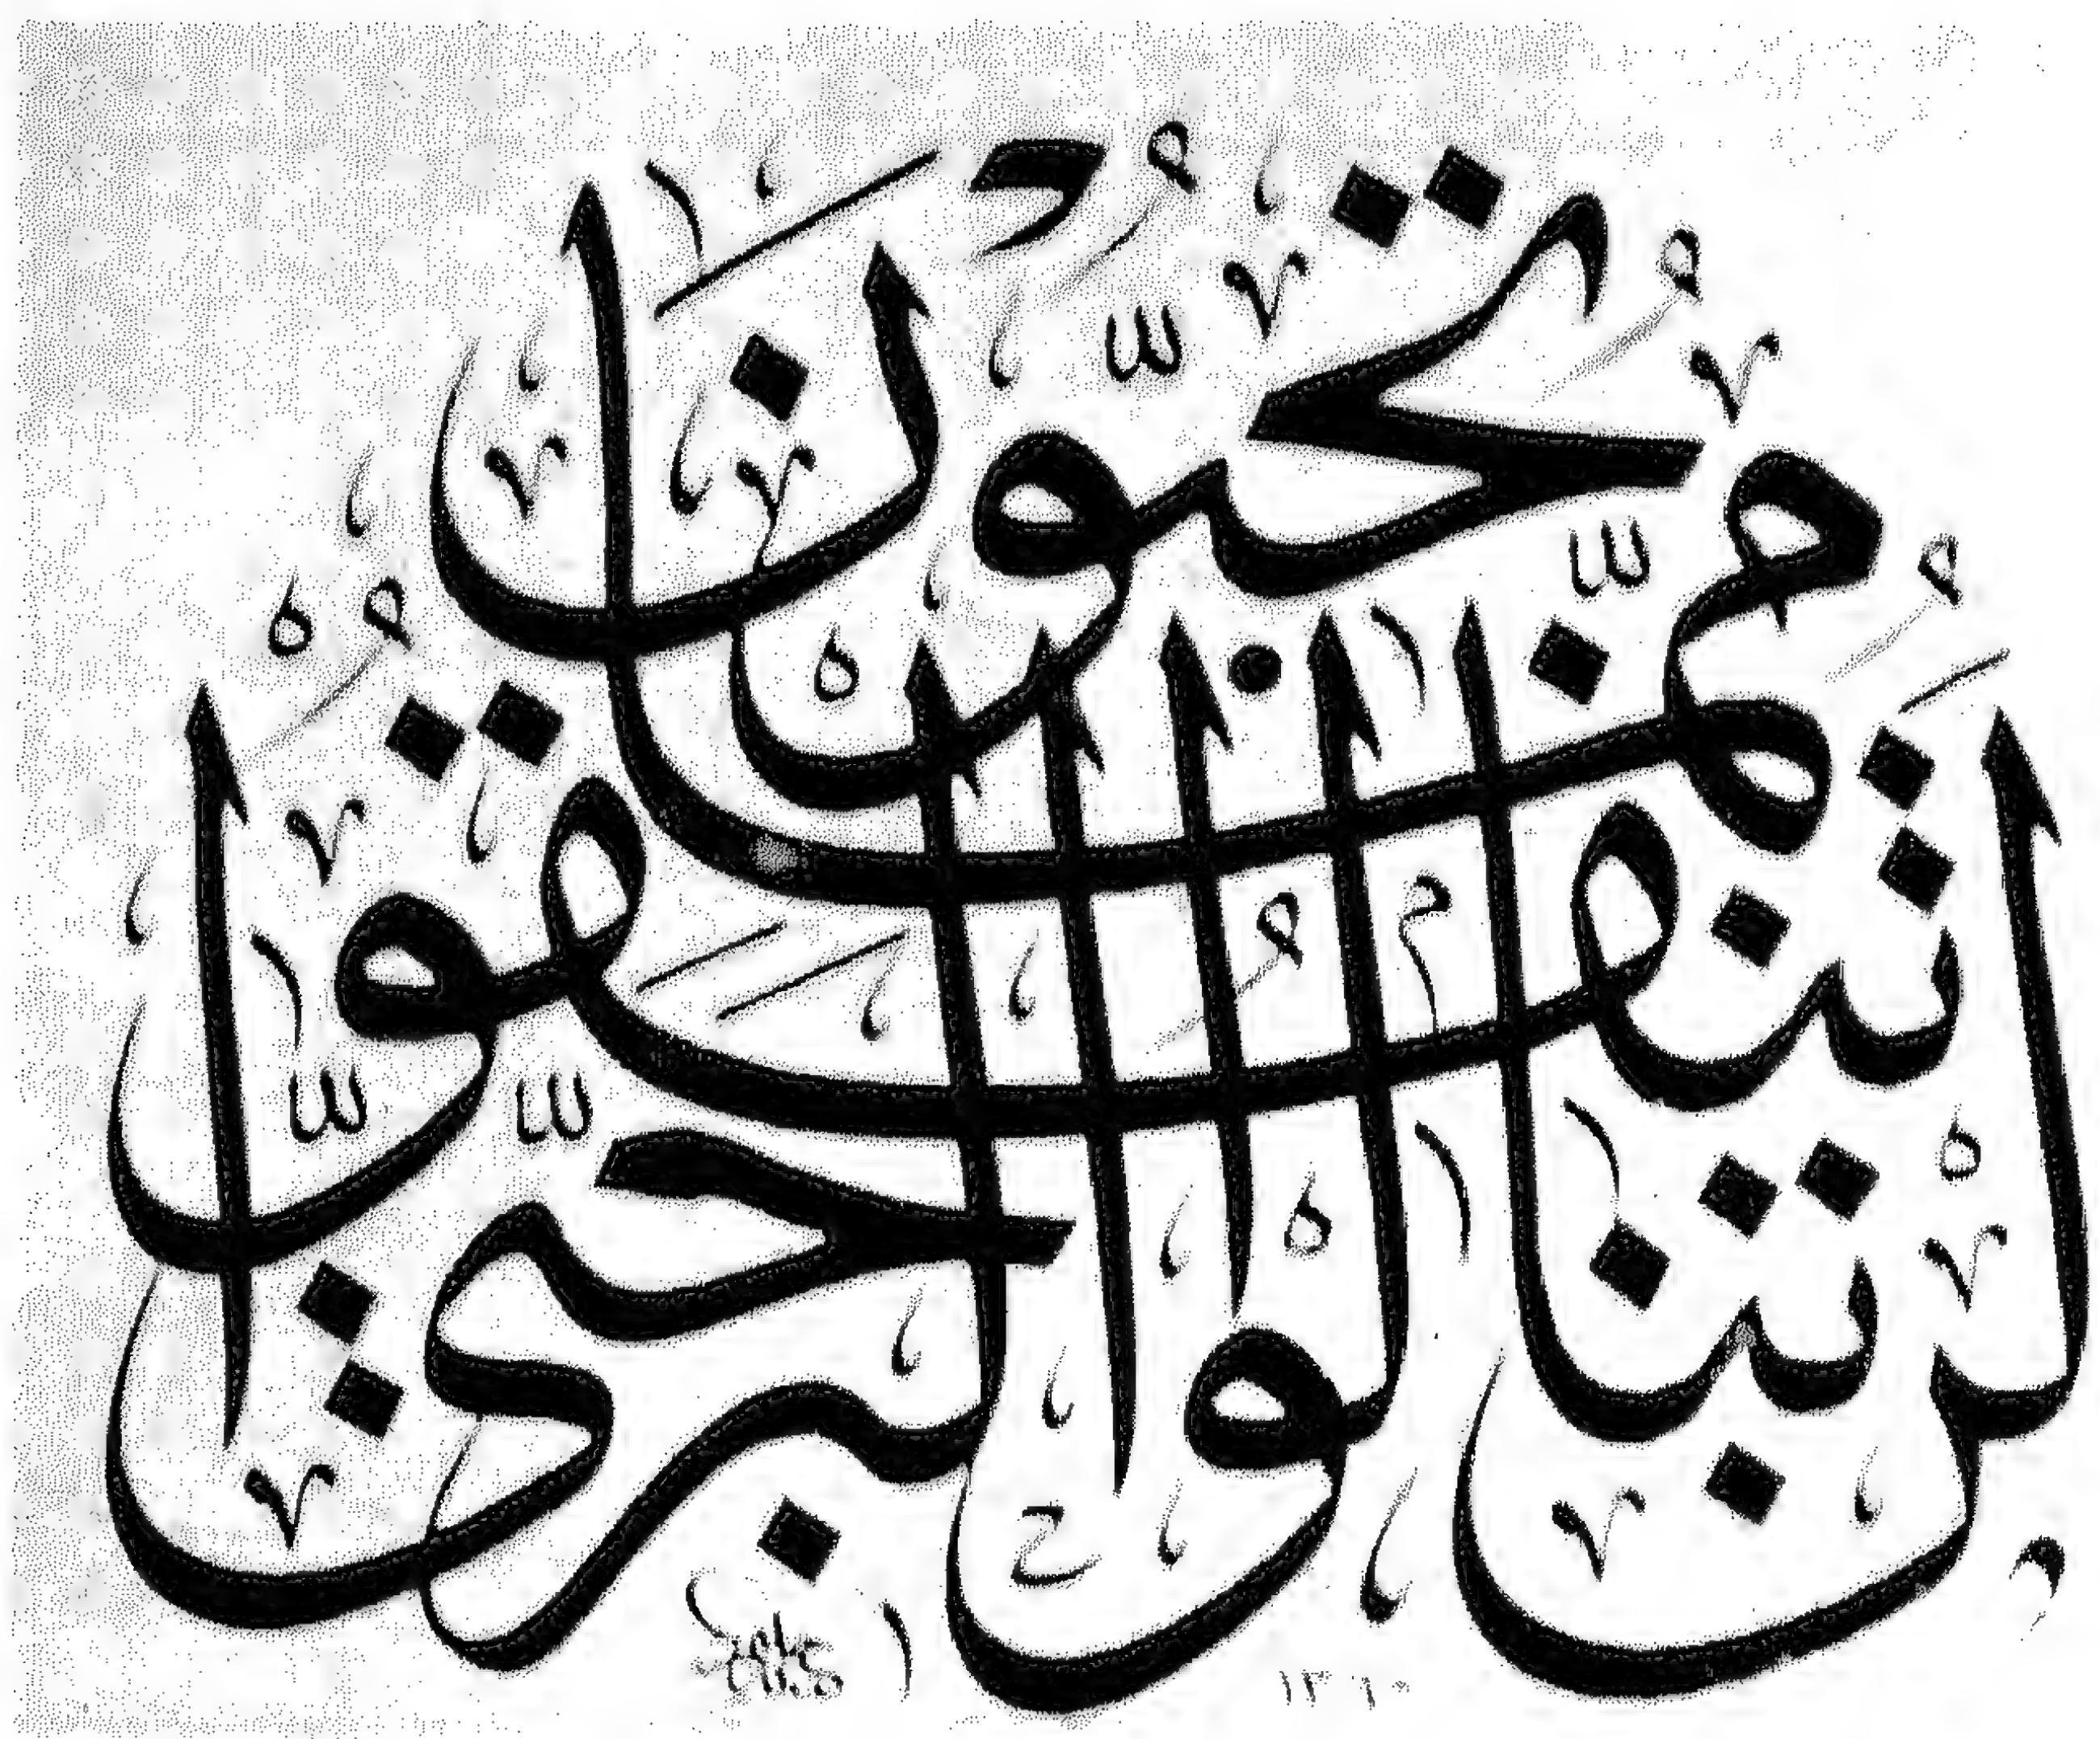 لن تنالوا البر حتى
تنفقوا مما تحبون
١٣١٠